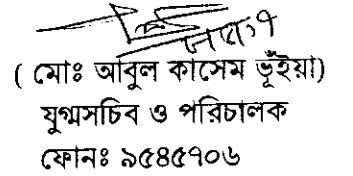 ( মোঃ আবুল কাসেম ভূঁইয়া)
যুগ্মসচিব ও পরিচালক
ফোনঃ ৯৫৪৫৭০৬